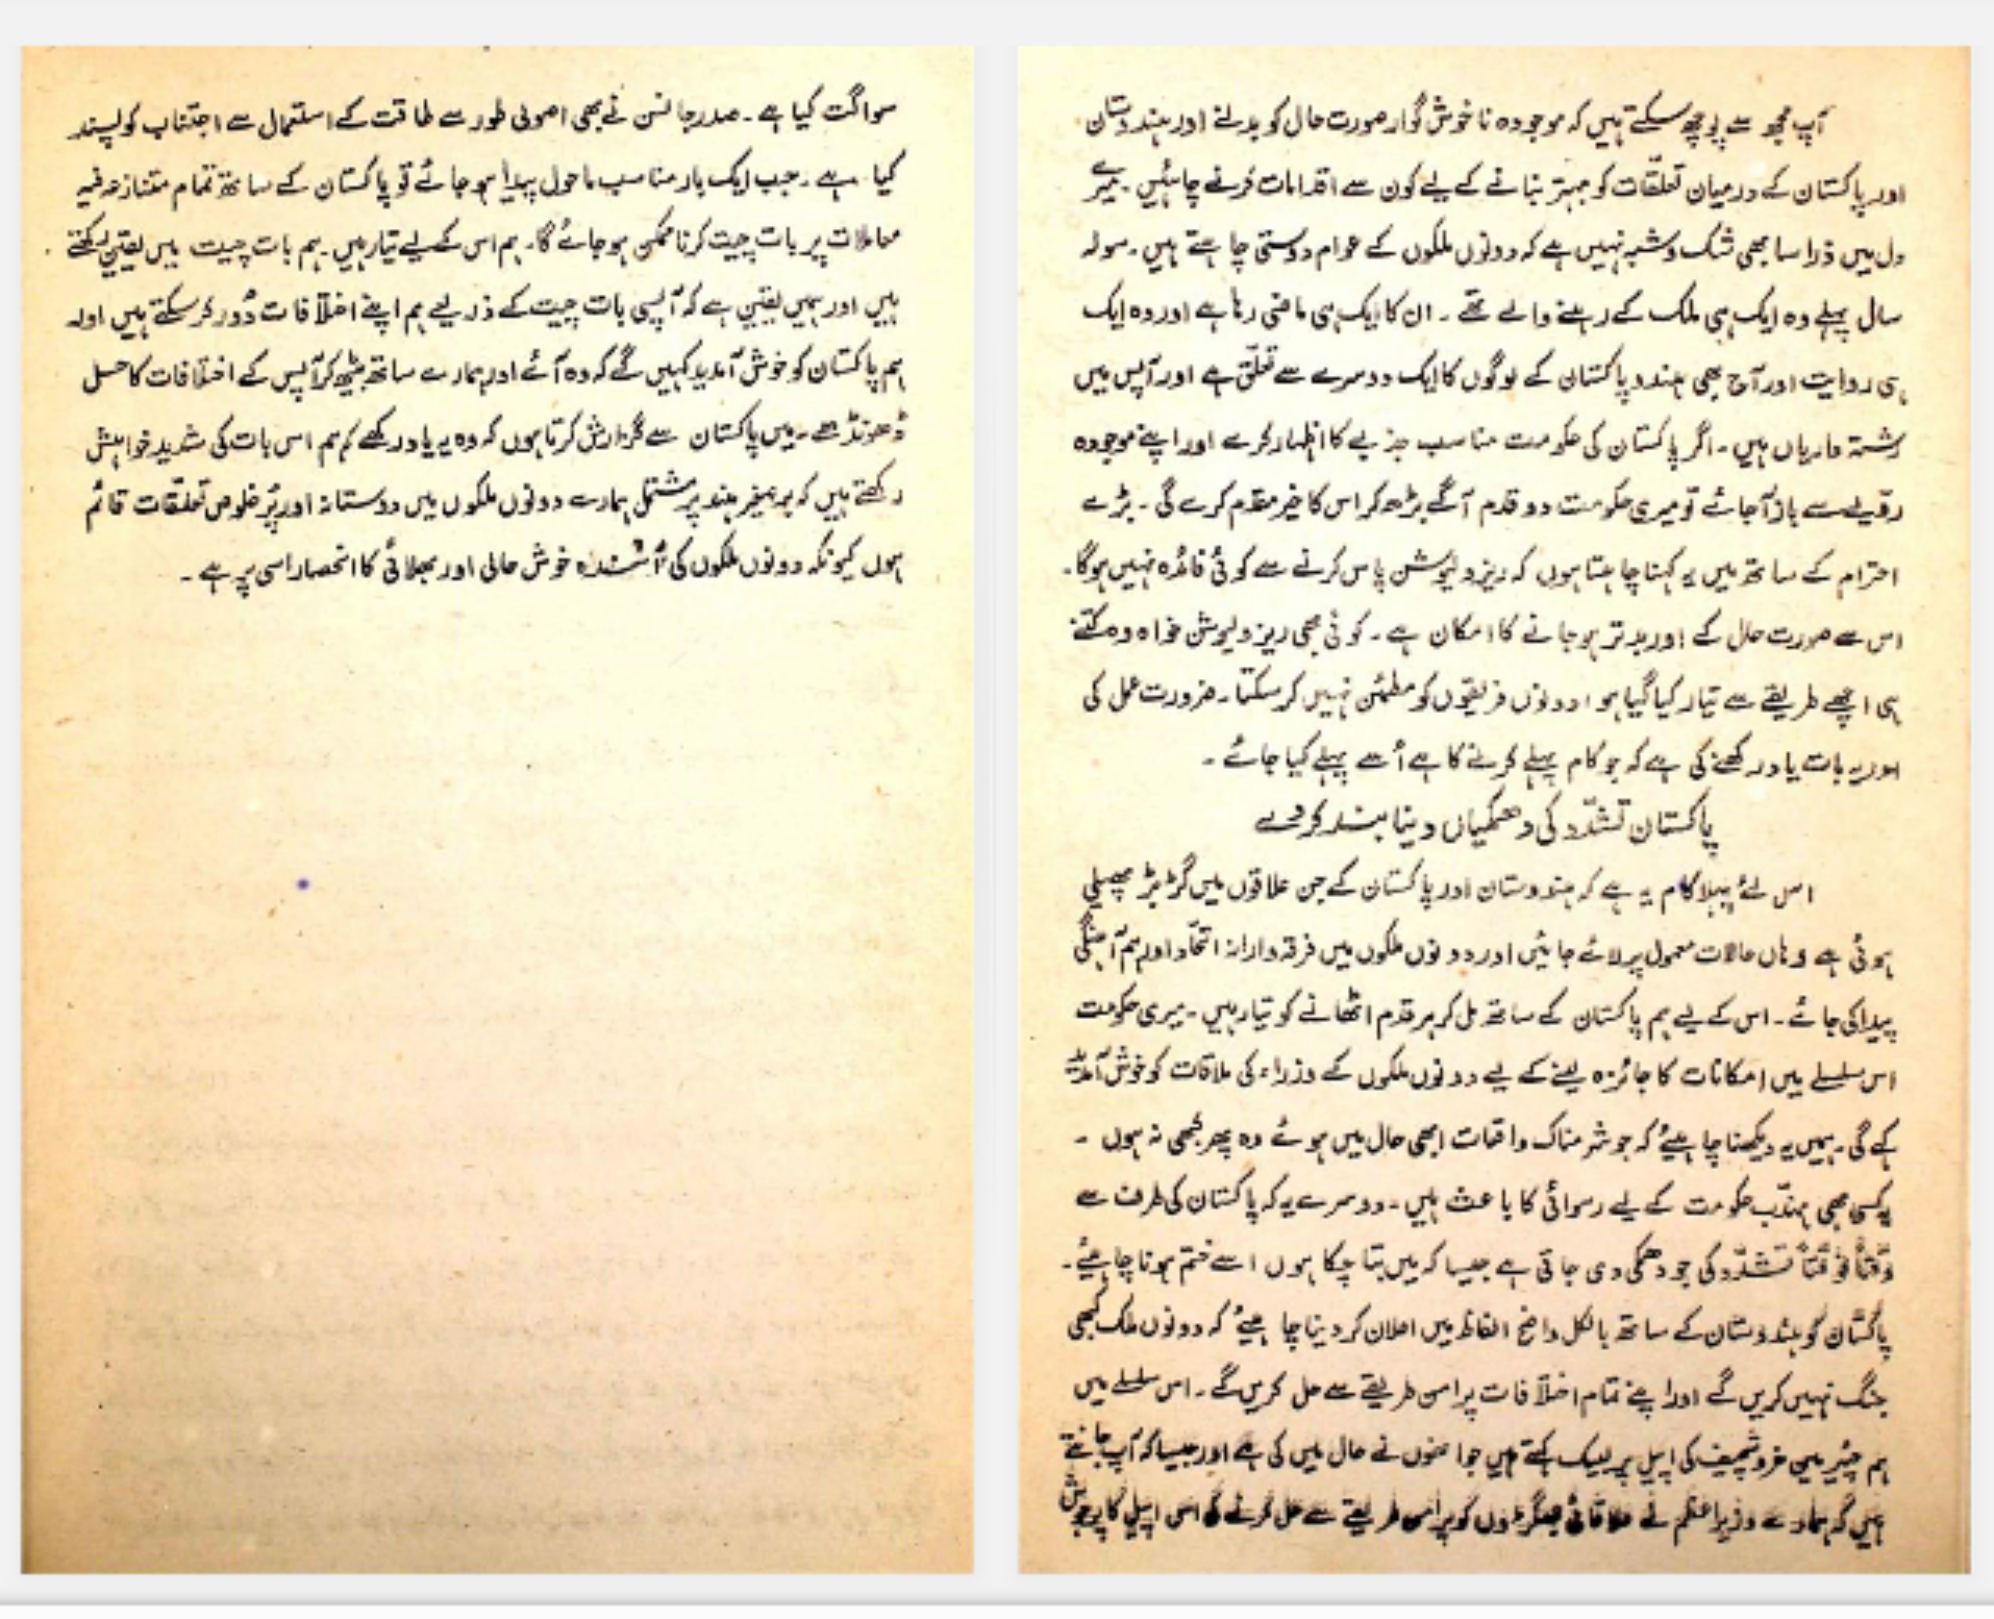 آپ مجھ سے پوچھ سکتے ہیں کہ موجودہ ناخوش گوار صورت حال کو بدلنے اور ہندوستان
اور پاکستان کے درمیان تعلقات کو بہتر بنانے کے لیے کون سے اقدامات کرنے چاہئیں۔ میرے
دل میں ذرا سا بھی شک و شبہ نہیں ہے کہ دونوں ملکوں کے عوام دوستی چاہتے ہیں۔ سولہ
سال پہلے وہ ایک ہی ملک کے رہنے والے تھے۔ ان کا ایک ہی ماضی رہا ہے اور وہ ایک
ہی روایت اور آج بھی ہندو پاکستان کے لوگوں کا ایک دوسرے سے تعلّق ہے اور آپس میں
رشتہ داریاں ہیں۔ اگر پاکستان کی حکومت مناسب جذبے کا اظہار کرے اور اپنے موجودہ
رویّے سے باز آجائے تو میری حکومت دو قدم آگے بڑھ کر اس کا خیر مقدم کرے گی۔ بڑے
احترام کے ساتھ میں یہ کہنا چاہتا ہوں کہ ریزولیوشن پاس کرنے سے کوئی فائدہ نہیں ہوگا۔
اس سے صورت حال کے اور بدتر ہو جانے کا امکان ہے۔ کوئی بھی ریزولیوشن خواہ وہ کتنے
ہی اچھے طریقے سے تیار کیا گیا ہو دونوں فریقوں کو مطمئن نہیں کر سکتا۔ ضرورت عمل کی
اور یہ بات یاد رکھنے کی ہے کہ جو کام پہلے کرنے کا ہے اُسے پہلے کیا جائے۔
پاکستان تشدّد کی دھمکیاں دینا بند کر دے
اس لئے پہلا کام یہ ہے کہ ہندوستان اور پاکستان کے جن علاقوں میں گڑبڑ پھیلی
ہوئی ہے وہاں حالات معمول پر لائے جائیں اور دونوں ملکوں میں فرقہ وارانہ اتحاد اور ہم آہنگی
پیدا کی جائے۔ اس کے لیے ہم پاکستان کے ساتھ مل کر ہر قدم اٹھانے کو تیار ہیں۔ میری حکومت
اس سلسلے میں امکانات کا جائزہ لینے کے لیے دونوں ملکوں کے وزراء کی ملاقات کو خوش آمدید
کہے گی۔ ہمیں یہ دیکھنا چاہیئے کہ جو شرمناک واقعات ابھی حال میں ہوئے وہ پھر کبھی نہ ہوں ۔
یہ کسی بھی مہذّب حکومت کے لیے رسوائی کا باعث ہیں۔ دوسرے یہ کہ پاکستان کی طرف سے
وقتاً فوقتاً تشدّد کی جو دھمکی دی جاتی ہے جیسا کہ میں بتا چکا ہوں اسے ختم ہونا چاہیئے۔
پاکستان کو ہندوستان کے ساتھ بالکل واضح الفاظ میں اعلان کر دینا چاہیئے کہ دونوں ملک کبھی
جنگ نہیں کریں گے اور اپنے تمام اختلافات پرامن طریقے سے حل کریں گے۔ اس سلسلے میں
ہم چیئرمین خروشچیف کی اپیل پر لبیک کہتے ہیں جو انھوں نے حال میں کی ہے اور جیسا کہ آپ جانتے
ہیں کہ ہمارے وزیراعظم نے علاقائی جھگڑوں کو پرامن طریقے سے حل کرنے کی اس اپیل کا پرجوش
سواگت کیا ہے۔ صدر جانسن نے بھی اصولی طور سے طاقت کے استعمال سے اجتناب کو پسند
کیا ہے۔ جب ایک بار مناسب ماحول پیدا ہو جائے تو پاکستان کے ساتھ تمام متنازعہ فیہ
معاملات پر بات چیت کرنا ممکن ہو جائے گا۔ ہم اس کے لیے تیار ہیں۔ ہم بات چیت میں یقین رکھتے
ہیں اور ہمیں یقین ہے کہ آپسی بات چیت کے ذریعے ہم اپنے اختلافات دُور کر سکتے ہیں اور
ہم پاکستان کو خوش آمدید کہیں گے کہ وہ آئے اور ہمارے ساتھ بیٹھ کر آپس کے اختلافات کا حل
ڈھونڈھے۔ میں پاکستان سے گزارش کرتا ہوں کہ وہ یہ یاد رکھے کہ ہم اس بات کی شدید خواہش
رکھتے ہیں کہ برصغیر ہند پر مشتمل ہمارے دونوں ملکوں میں دوستانہ اور پُرخلوص تعلقات قائم
ہوں کیونکہ دونوں ملکوں کی آئندہ خوش حالی اور بھلائی کا انحصار اسی پر ہے۔